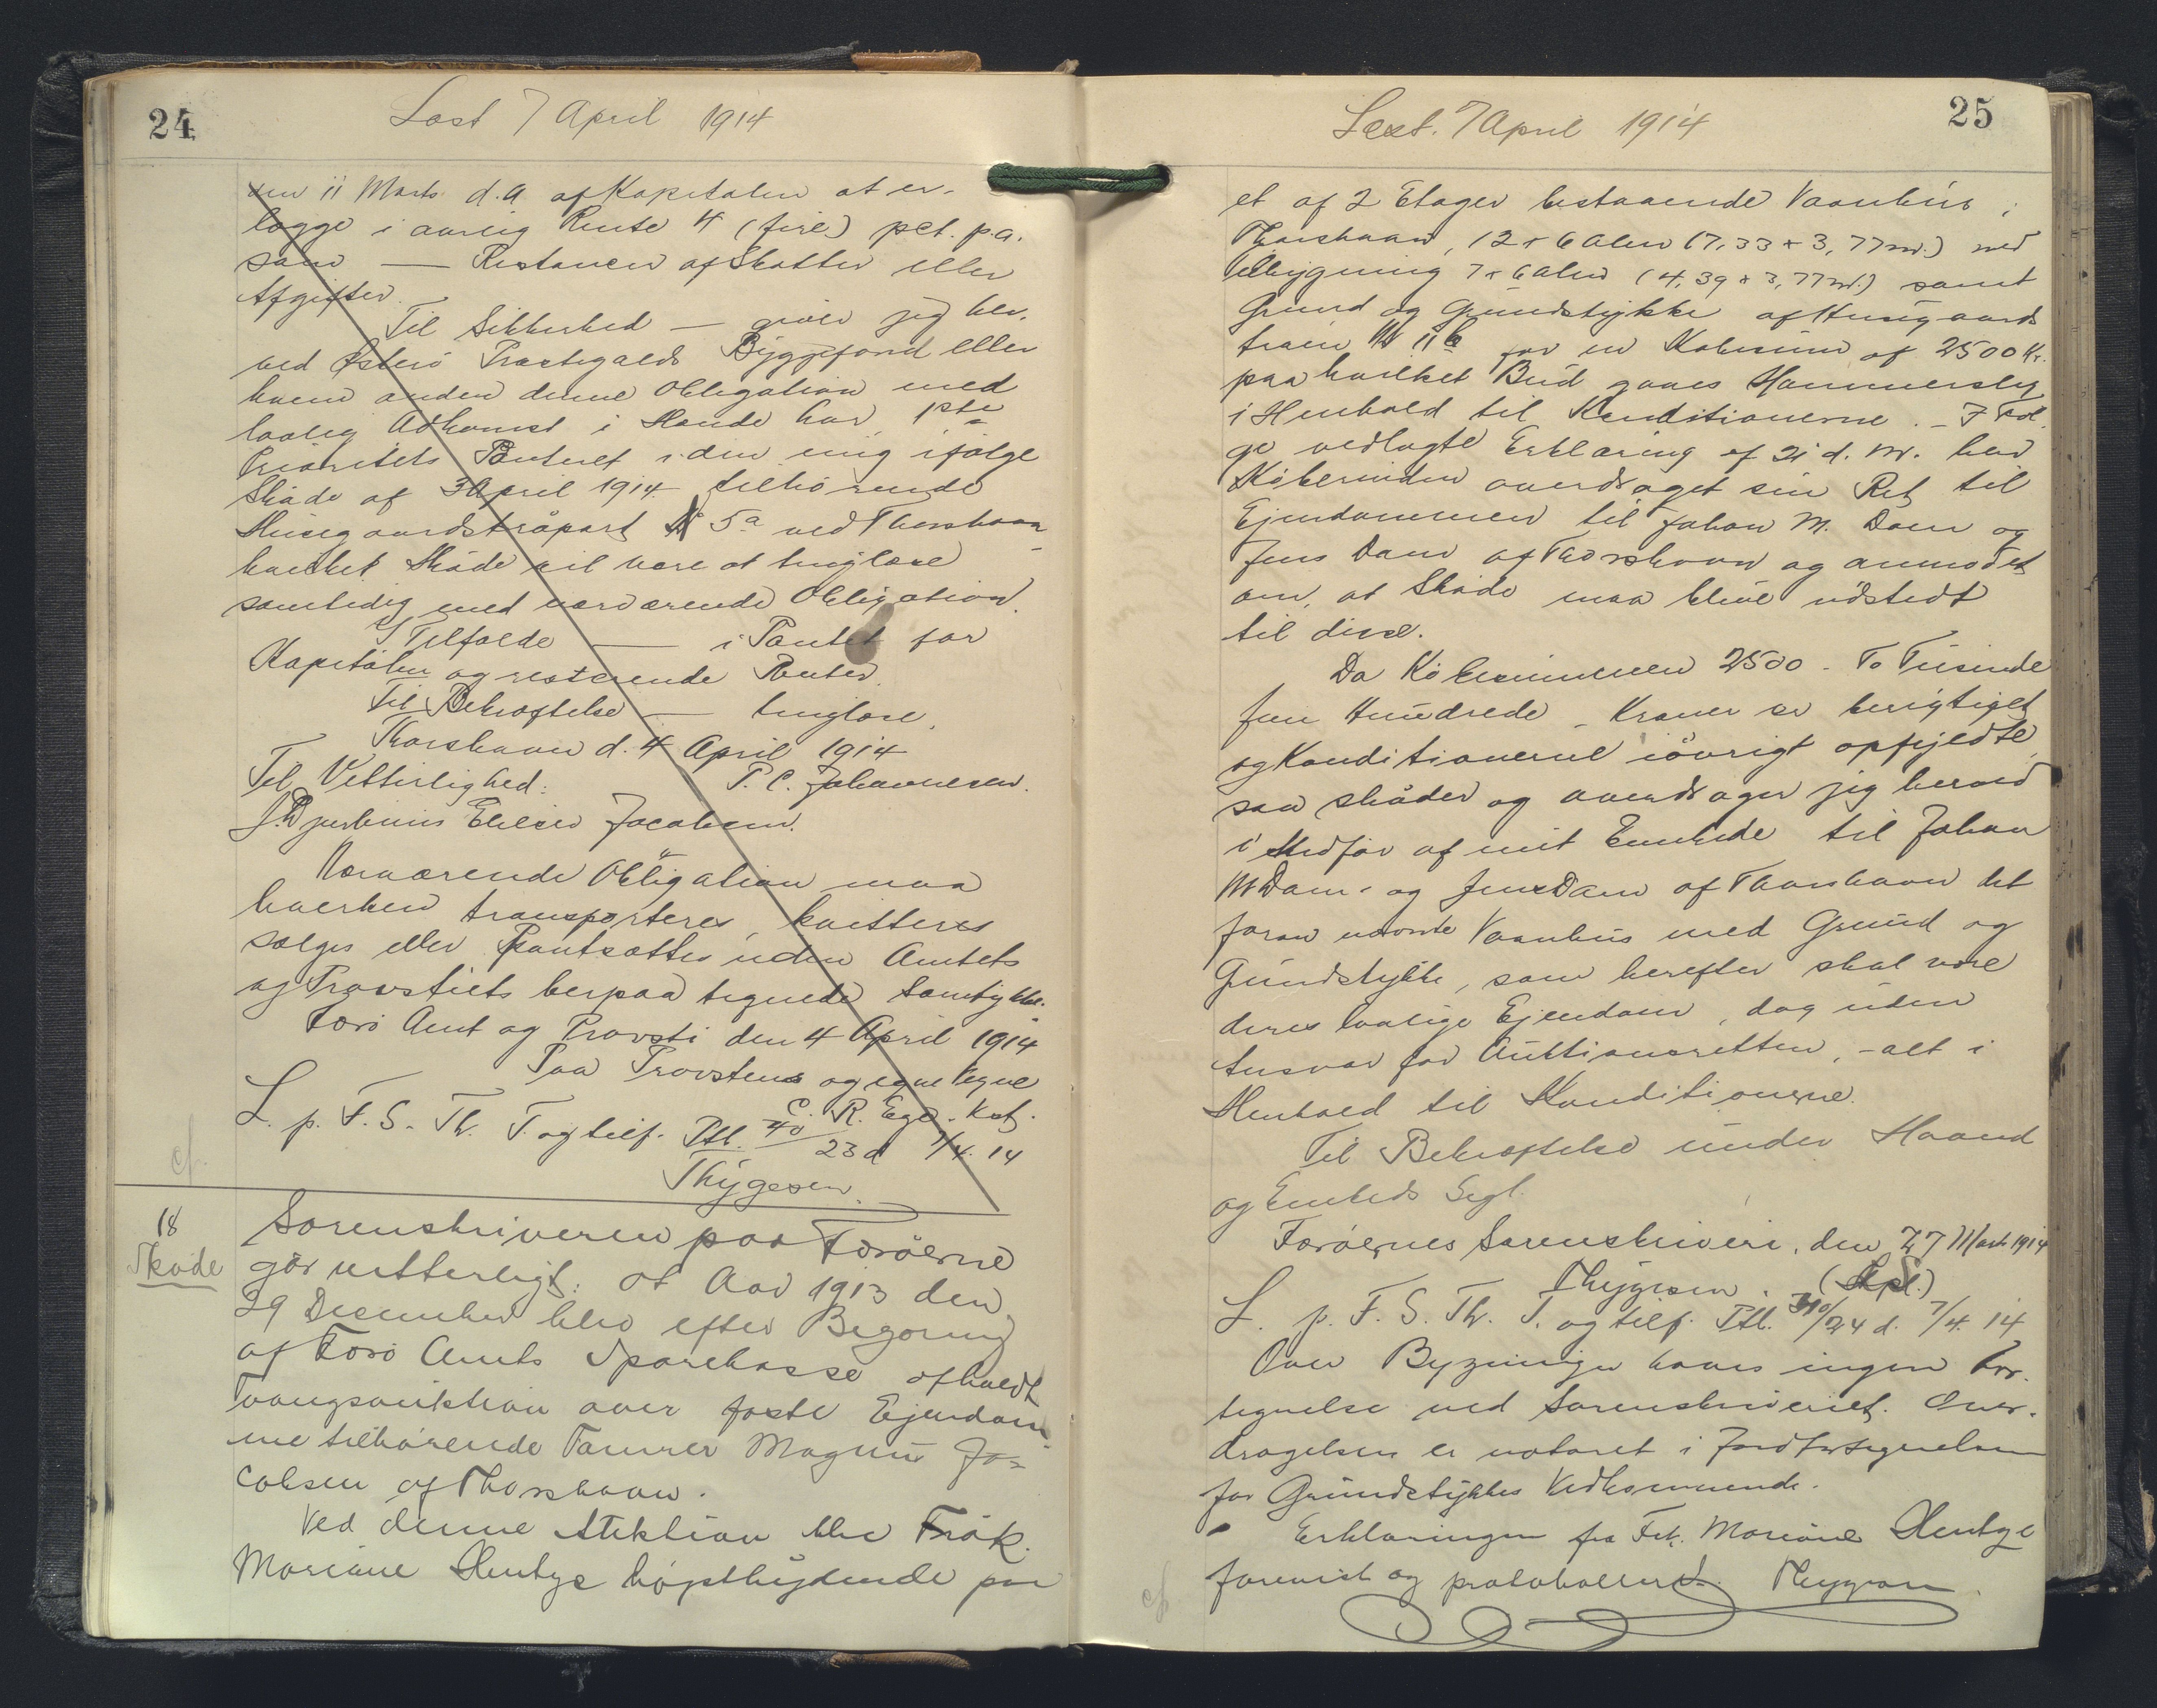 24
Læst 7 April 1914
den 11 Marts d.A. af Kapitalen at er-
lægge i aarlig Rente 4 (fire) pct. p.a.
som — Restancer af Skatter eller
Afgifter.
Til Sikkerhed — giver jeg her-
ved Østerø Præstegjælds Byggefond eller
hvem anden denne Obligation med
lovlig Adkomst i Hænde har, 1ste
Prioritets Panteret i den mig ifølge
Skøde af 3 April 1914 tilhørende
Husegaardstrøpart № 5a ved Thorshavn
hvilket Skøde vil være at tinglæse
samtidig med nærværende Obligation.
I Tilfælde — i Pantet for
Kapitalen og resterende Renter.
Til Bekræftelse — tinglæse.
Thorshavn d. 4 April 1914
Til Vitterlighed: P. C. Johannesen.
J. Djurhuus Elieser Jacobsen.
Nærværende Obligation maa
hverken transporteres, kvitteres
sælges eller pantsættes uden Amtets
og Provstiets herpaa tegnede Samtykke.
Færø Amt og Provsti den 4 April 1914
Paa Provstens og egne Vegne
C. R. Ege. Kst.
L. p. F. S. Th. T. og tilf. Ptl. 40/23 d 7/4. 14
Thygesen.
cf.
18
Skøde
Sorenskriveren paa Færøerne
gør vitterligt: at Aar 1913 den
29 December blev efter Begæring
af Færø Amts Sparekasse afholdt
Tvangsauktion over faste Ejendom-
me tilhørende Tømrer Magnus Ja-
cobsen af Thorshavn.
Ved denne Auktion blev Frøk.
Mariane Hentze højstbydende paa
25
Læst. 7 April 1914
et af 2 Etager bestaaende Vaanhus i
Thorshavn, 12 x 6 Alen (7,33 x 3,77 m.) med
Tilbygning 7 x 6 Alen (4,39 x 3,77 m.) samt
Grund og Grundstykke af Husegaards
trøen № 11b for en Købesum af 2500 Kr.
paa hvilket Bud gaves Hammerslag
i Henhold til Konditionerne. – I Føl-
ge vedlagte Erklæring af 21 d. M. har
Køberinden overdraget sin Ret til
Ejendommen til Johan M. Dam og
Jens Dam af Thorshavn og anmodet
om, at Skøde maa blive udstedt
til disse.
Da Købesummen 2500 – To Tusinde
fem Hundrede – Kroner er berigtiget
og Konditionerne iøvrigt opfyldte,
saa skøder og overdrager jeg herved
i Medfør af mit Embede til Johan
M. Dam og Jens Dam af Thorshavn det
foran nævnte Vaanhus med Grund og
Grundstykke, som herefter skal være
deres lovlige Ejendom, dog uden
Ansvar for Auktionsretten, – alt i
Henhold til Konditionerne.
Til Bekræftelse under Haand
og Embeds Segl.
Færøernes Sorenskriveri, den 27 Marts 1914
Thygesen. (Segl.)
L. p. F. S. Th. T. og tilf. Ptl. 310/24 d. 7/4. 14
Over Bygninger haves ingen For-
tegnelse ved Sorenskriveriet. Over-
dragelsen er noteret i Jordfortegnelsen
for Grundstykkes Vedkommende.
Erklæringen fra Frk. Mariane Hentze
forevist og protokolleret. Thygesen.
cf